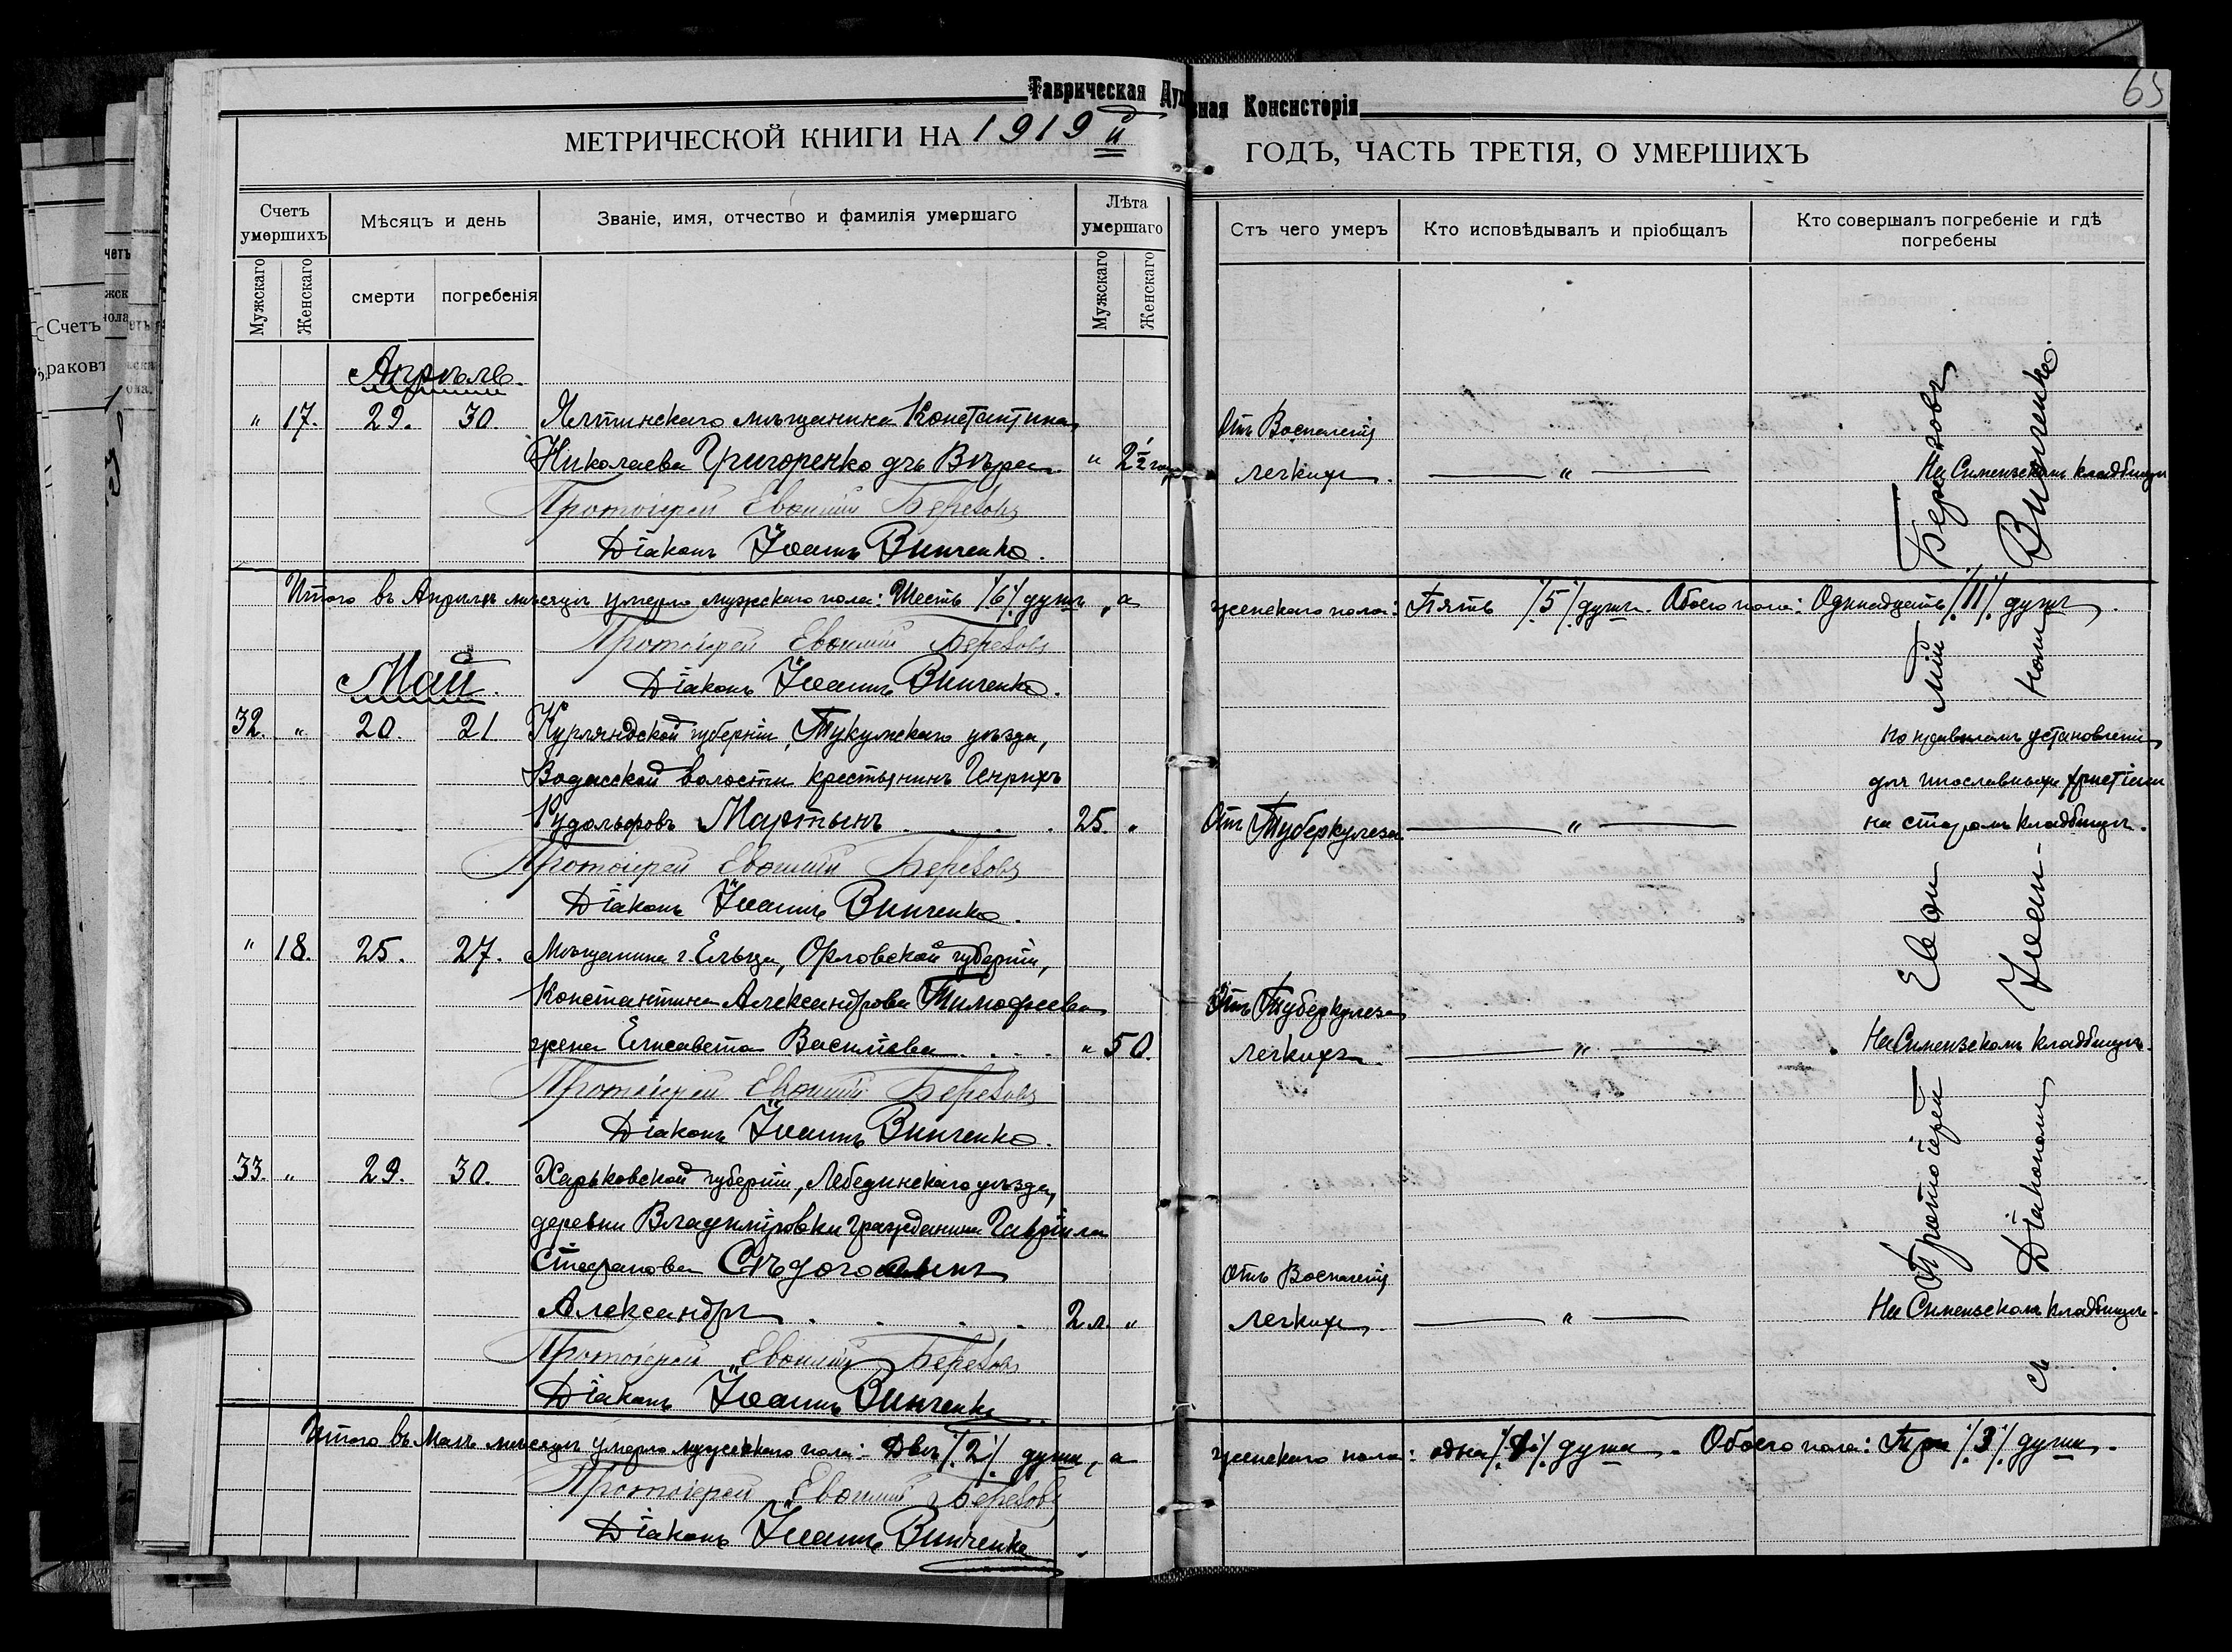 Таврическая Духовная Консисторія
65
МЕТРИЧЕСКОЙ КНИГИ НА 1919й ГОДЪ, ЧАСТЬ ТРЕТІЯ, О УМЕРШИХЪ
Счетъ умершихъ
Мужскаго
Женскаго
Мѣсяцъ и день
смерти
погребенія
Званіе, имя, отчество и фамилія умершаго
Лѣта умершаго
Мужскаго
Женскаго
Отъ чего умеръ
Кто исповѣдывалъ и пріобщалъ
Кто совершалъ погребеніе и гдѣ погребены
Апрѣль.
" 17. 29. 30. Ялтинскаго мѣщанина Константина Отъ Воспаленія
Николаева Григоренко дчь Вѣра " 2½ года легкихъ. " На Симеизскомъ кладбищѣ
Протоіерей Евѳимій Березовъ
Діаконъ Іоаннъ Винченко.
Итого въ Апрѣлѣ мѣсяцѣ умерло мужескаго пола: Шесть /6/ душъ, а женскаго пола: Пять /5/ душъ. Обоего пола: Одинадцать /11/ душъ.
Протоіерей Евѳимій Березовъ
Май.
Діаконъ Іоаннъ Винченко.
32. " 20. 21 Курляндской губерніи, Тукумскаго уѣзда, по правиламъ установлен
волости крестьянинъ Генрихъ для инославныхъ христіан
Рудольфовъ Мартынъ 25. " Отъ Туберкулеза " на старомъ кладбищѣ.
Протоіерей Евѳимій Березовъ
Діаконъ Іоаннъ Винченко.
" 18. 25. 27. Мѣщанина г. Ельца, Орловской губерніи,
Константина Александрова Тимофеева Отъ Туберкулеза
жена Елисавета Васильева " 50. легкихъ " На Симеизскомъ кладбищѣ.
Протоіерей Евѳимій Березовъ
Діаконъ Іоаннъ Винченко.
33. " 29. 30. Харьковской губерніи, Лебединскаго уѣзда,
деревни Владиміровки гражданина Гавріила
Стефанова сынъ Отъ Воспаленія
Александръ 2 л. " легкихъ. " На Симеизскомъ кладбищѣ.
Протоіерей Евѳимій Березовъ
Діаконъ Іоаннъ Винченко
Итого въ Маѣ мѣсяцѣ умерло мужескаго пола: Двѣ /2/ души, а женскаго пола: одна /1/ душа. Обоего пола: Три /3/ души.
Протоіерей Евѳимій Березовъ
Діаконъ Іоаннъ Винченко
Протоіерей Евѳимій Березовъ
съ Діакономъ Іоанномъ Винченко.
Счетъ
раковъ